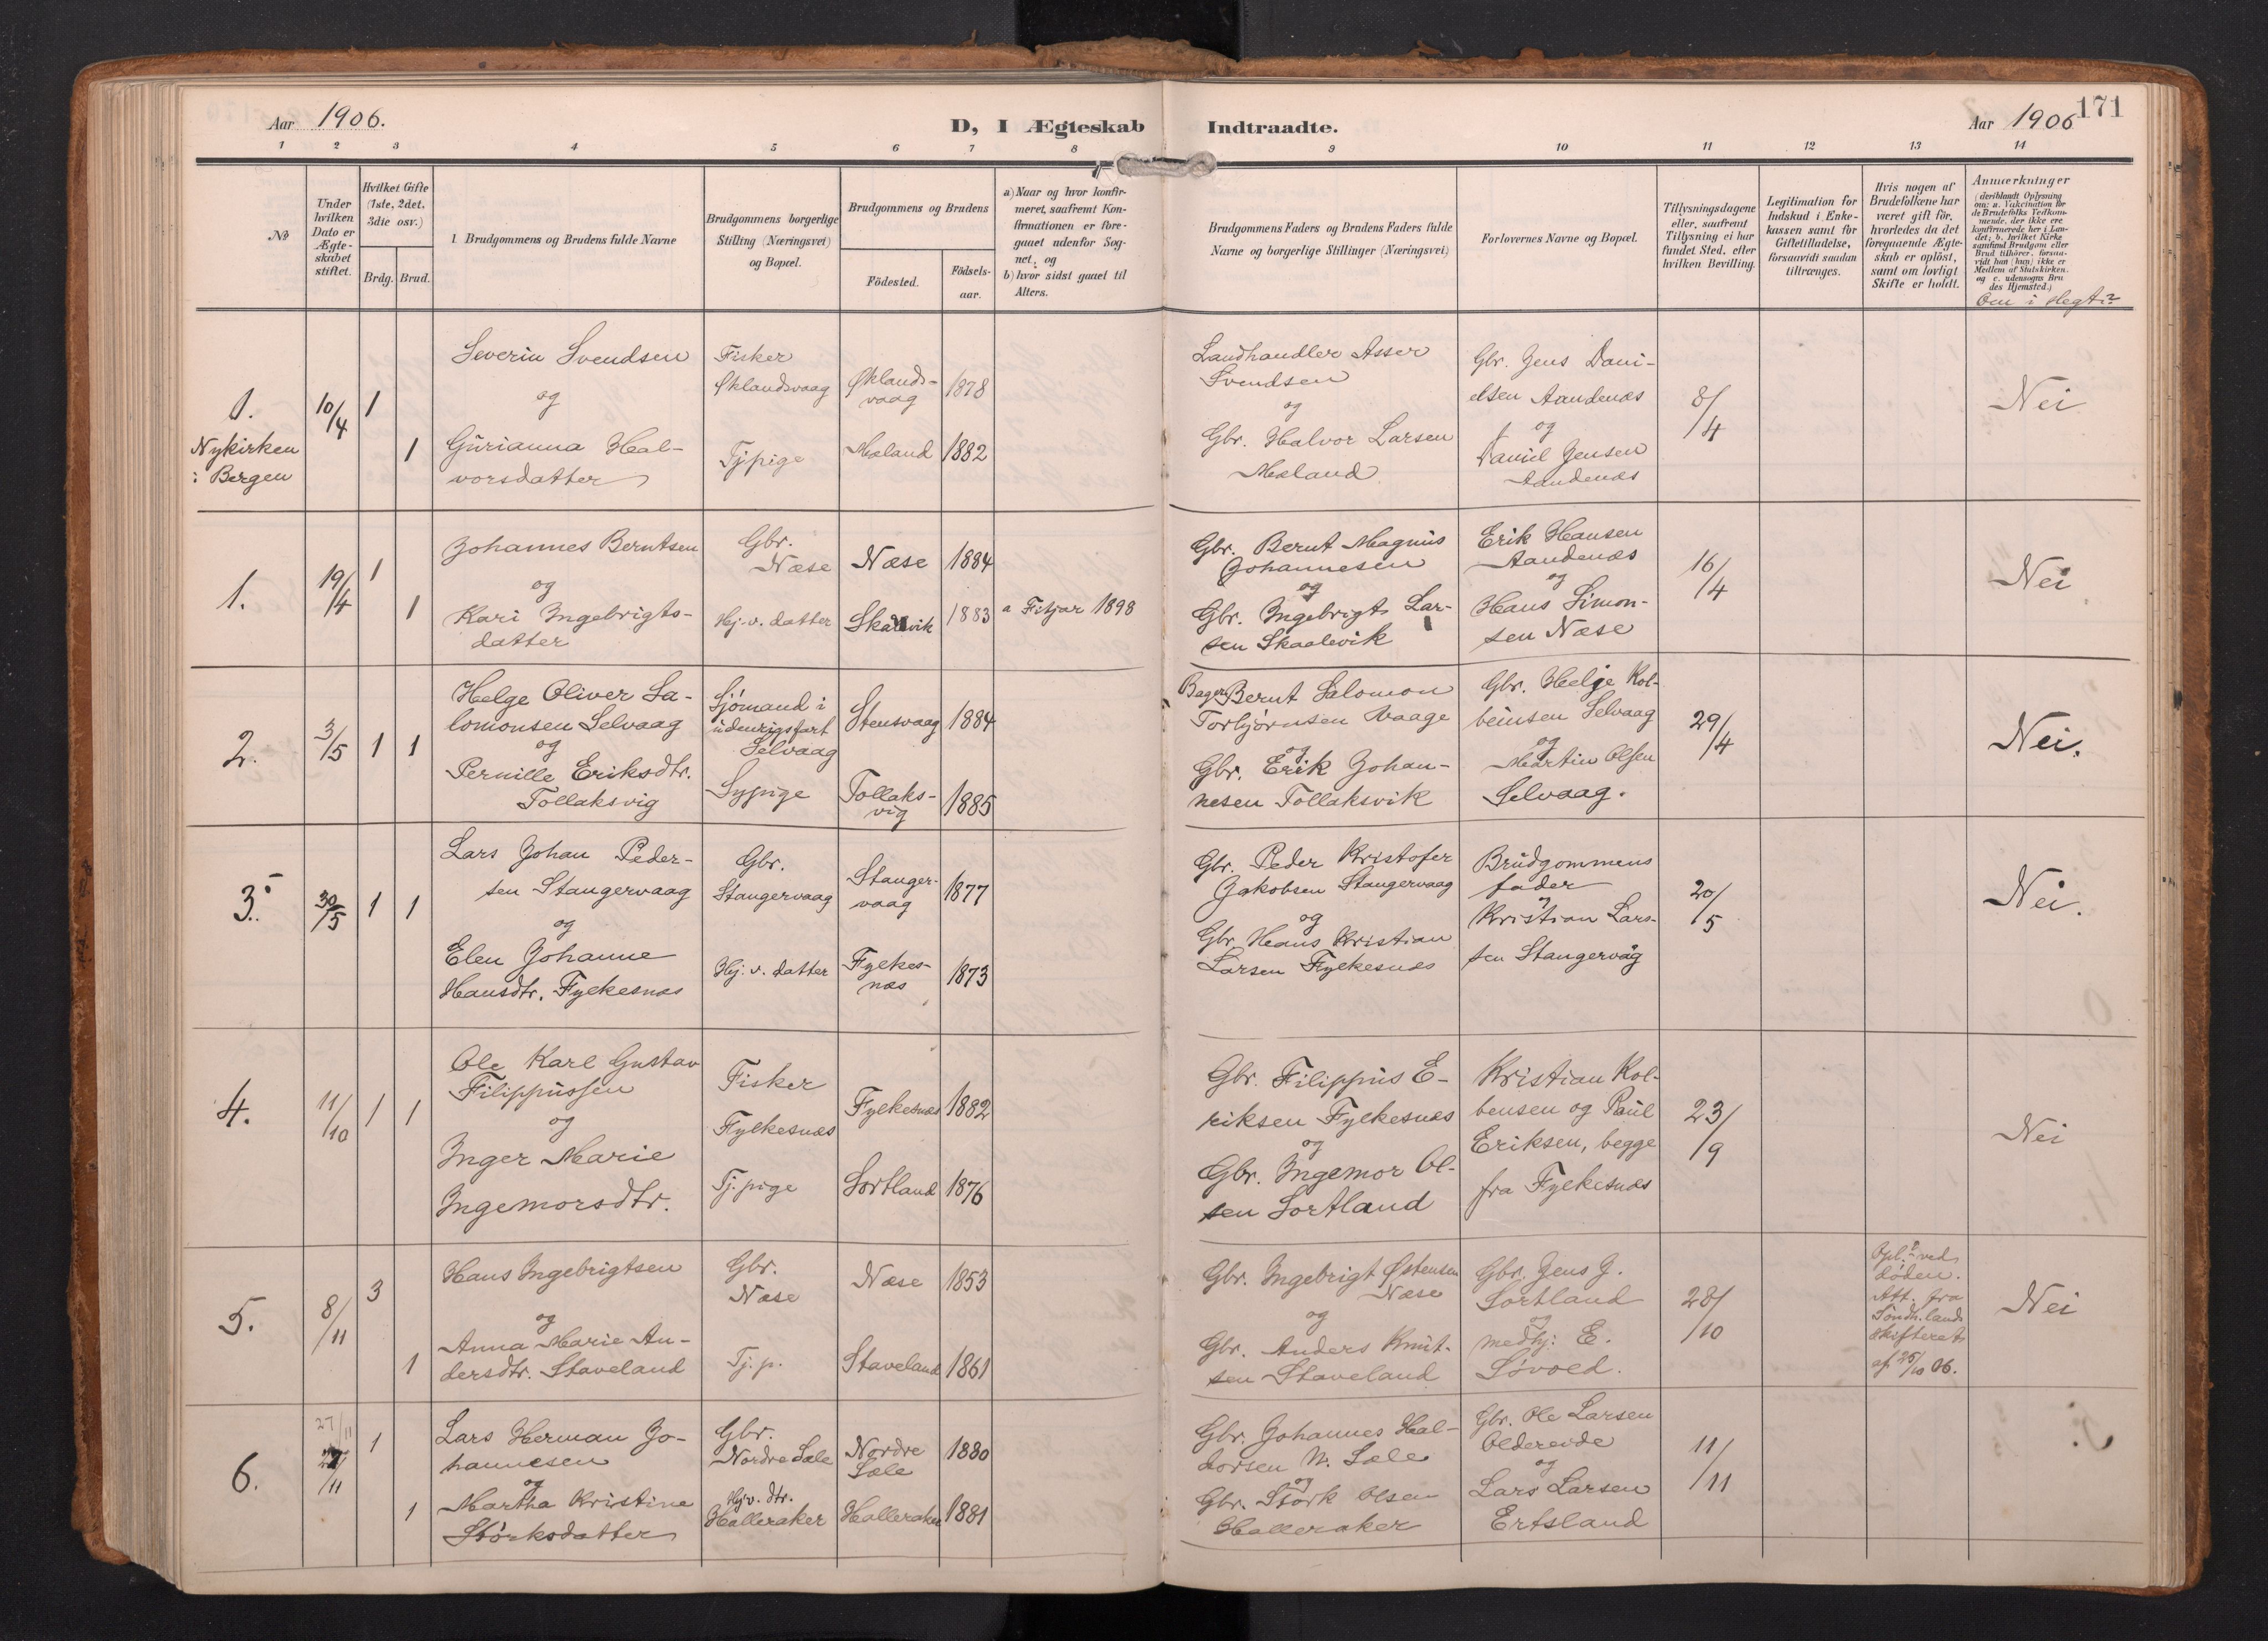 171
Aar 1906.
D, I Ægteskab Indtraadte.
Aar 1906
1 2 3 4 5 6 7 8 9 10 11 12 13 14
No
Under hvilken Dato er Ægteskabet stiftet.
Hvilket Gifte (1ste, 2det, 3die osv.)
Brdg. Brud.
Brudgommens og Brudens fulde Navne
Brudgommens borgerlige Stilling (Næringsvei) og Bopæl.
Brudgommens og Brudens
Födested.
Födselsaar.
a) Naar og hvor konfirmeret, saafremt Konfirmationen er foregaaet udenfor Sognet; og
b) hvor sidst gaaet til Alters.
Brudgommens Faders og Brudens Faders fulde Navne og borgerlige Stillinger (Næringsvei)
Forlovernes Navne og Bopæl.
Tillysningsdagene eller, saafremt Tillysning ei har fundet Sted, efter hvilken Bevilling.
Legitimation for Indskud i Enkekassen samt for Giftetilladelse, forsaavidt saadan tiltrænges.
Hvis nogen af Brudefolkene har været gift för, hvorledes da det foregaaende Ægteskab er oplöst, samt om lovligt Skifte er holdt.
Anmærkninger
(deriblandt Oplysning om: a. Vakcination for de Brudefolks Vedkommende, der ikke ere konfirmerede her i Landet; b. hvilket Kirkesamfund Brudgom eller Brud tilhörer, forsaavidt han (hun) ikke er Medlem af Statskirken, og c. udensogns Brudes Hjemsted.)
Om i slegt?
1. Nykirken i Bergen
10/4
1
1
Severin Svendsen
og
Gurianna Hal-
vorsdatter
Fisker
Øklandsvaag
Tjpige
Øklands-
vaag
1878
Mæland 1882
Landhandler Asser
Svendsen
og
Gbr. Halvor Larsen
Mæland
Gbr. Jens Dani-
elsen Aandenæs
og
Daniel Jensen
Aandenæs
8/4
Nei
1.
19/4
1
1
Johannes Berntsen
og
Kari Ingebrigts-
datter
Gbr.
Næse
Hj. v. datter
Næse 1884
1883
a Fitjar 1898
Gbr. Bernt Magnus
Johannesen
og
Gbr. Ingebrigt Lar-
sen Skaalevik
Erik Hansen
Aandenæs
og
Hans Simon-
sen Næse
16/4
Nei
2.
3/5
1 1
Helge Oliver Sa-
lomonsen Selvaag
og
Pernille Eriksdtr.
Tollaksvig
Sjömand i
udenrigsfart
Selvaag
Sypige
Stensvaag 1884
Tollaks-
vig
1885
Bager Bernt Salomon
Torbjörnsen Vaage
og
Gbr. Erik Johan-
nesen Tollaksvik
Gbr. Helge Kol-
beinsen Selvaag
og
Martin Olsen
Selvaag.
29/4
Nei.
3.
30/5
1 1
Lars Johan Peder-
sen Stangervaag
og
Elen Johanne
Hansdtr. Fylkesnæs
Gbr.
Stangervaag
Hj. v. datter
Stanger-
vaag
1877
Fylkes-
næs
1873
Gbr. Peder Kristofer
Jakobsen Stangervaag
og
Gbr. Hans Kristian
Larsen Fylkesnæs
Brudgommens
fader
Kristian Lars-
sen Stangervåg
20/5
Nei.
4.
11/10
1 1
Ole Karl Gustav
Filippussen
og
Inger Marie
Ingemorsdtr.
Fisker
Fylkesnæs
Tj. pige
Fylkesnæs 1882
Sortland 1876
Gbr. Filippus E-
riksen Fylkesnæs
og
Gbr. Ingemor Ol-
sen Sortland
Kristian Kol-
bensen og Paul
Eriksen, begge
fra Fylkesnæs
23/9
Nei
5.
8/11
3
1
Hans Ingebrigtsen
og
Anna Marie An-
dersdtr. Staveland
Gbr.
Næse
Tj. p.
Næse 1853
Staveland 1861
Gbr. Ingebrigt Østensen
Næse
og
Gbr. Anders Knut-
sen Staveland
Gbr. Jens J.
Sortland
og
medhj: E.
Lövold.
28/10
Opl. ved
döden.
Att. fra
Söndh.lands
skifteret
af 25/10 06.
Nei
6.
27/11
1
1
Lars Herman Jo-
hannesen
og
Martha Kristine
Störksdatter
Gbr.
Nordre Sæle
Hj. v. dtr.
Halleraker
Nordre
Sæle
1880
Halleraker 1881
Gbr. Johannes Hal-
dorsen N. Sæle
og
Gbr. Störk Olsen
Halleraker
Gbr. Ole Larsen
Oldereide
og
Lars Larsen
Ertsland
11/11